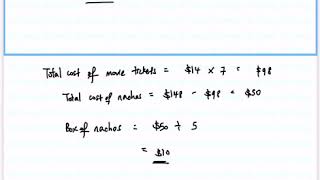 Total cost of movie tickets = $14 × 7 = $98
Total cost of nachos = $148 - $98 = $50
Box of nachos = $50 ÷ 5
= $10